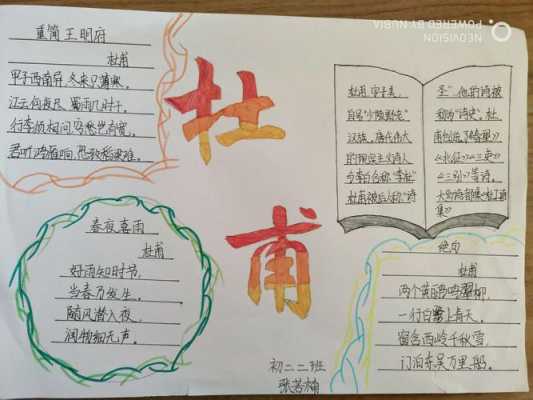 重简王明府
杜甫
甲子西南异，冬来只薄寒。
江云何夜尽，蜀雨几时干。
行李须相问，穷愁岂有宽。
君听鸿雁响，恐致稻粱难。
杜
甫
春夜喜雨
杜甫
好雨知时节，
当春乃发生。
随风潜入夜，
润物细无声。
杜甫，字子美，
自号"少陵野老"
汉族，唐代伟大
的现实主义诗人
与李白合称"李杜"
杜甫被后人称"诗
圣"，他的诗被
称为"诗史"。杜
《北征》《三吏》
《三别》等诗。
集》
绝句
杜甫
两个黄鹂鸣翠柳，
一行白鹭上青天。
窗含西岭千秋雪，
门泊东吴万里船。
初二二班
张若楠
NEOVISION
POWERED BY NUBIA